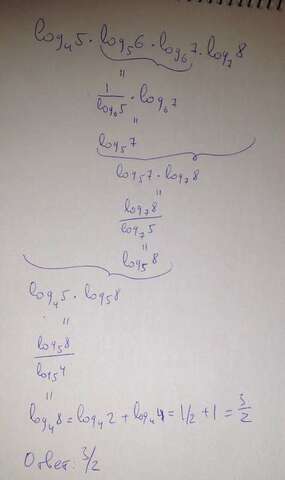 log₄5 · log₅6 · log₆7 · log₇8
=
1/log₆5 · log₆7
=
log₅7
log₅7 · log₇8
=
log₇8/log₇5
=
log₅8
log₄5 · log₅8
=
log₅8/log₅4
=
log₄8 = log₄2 + log₄4 = 1/2 + 1 = 3/2
Ответ: 3/2